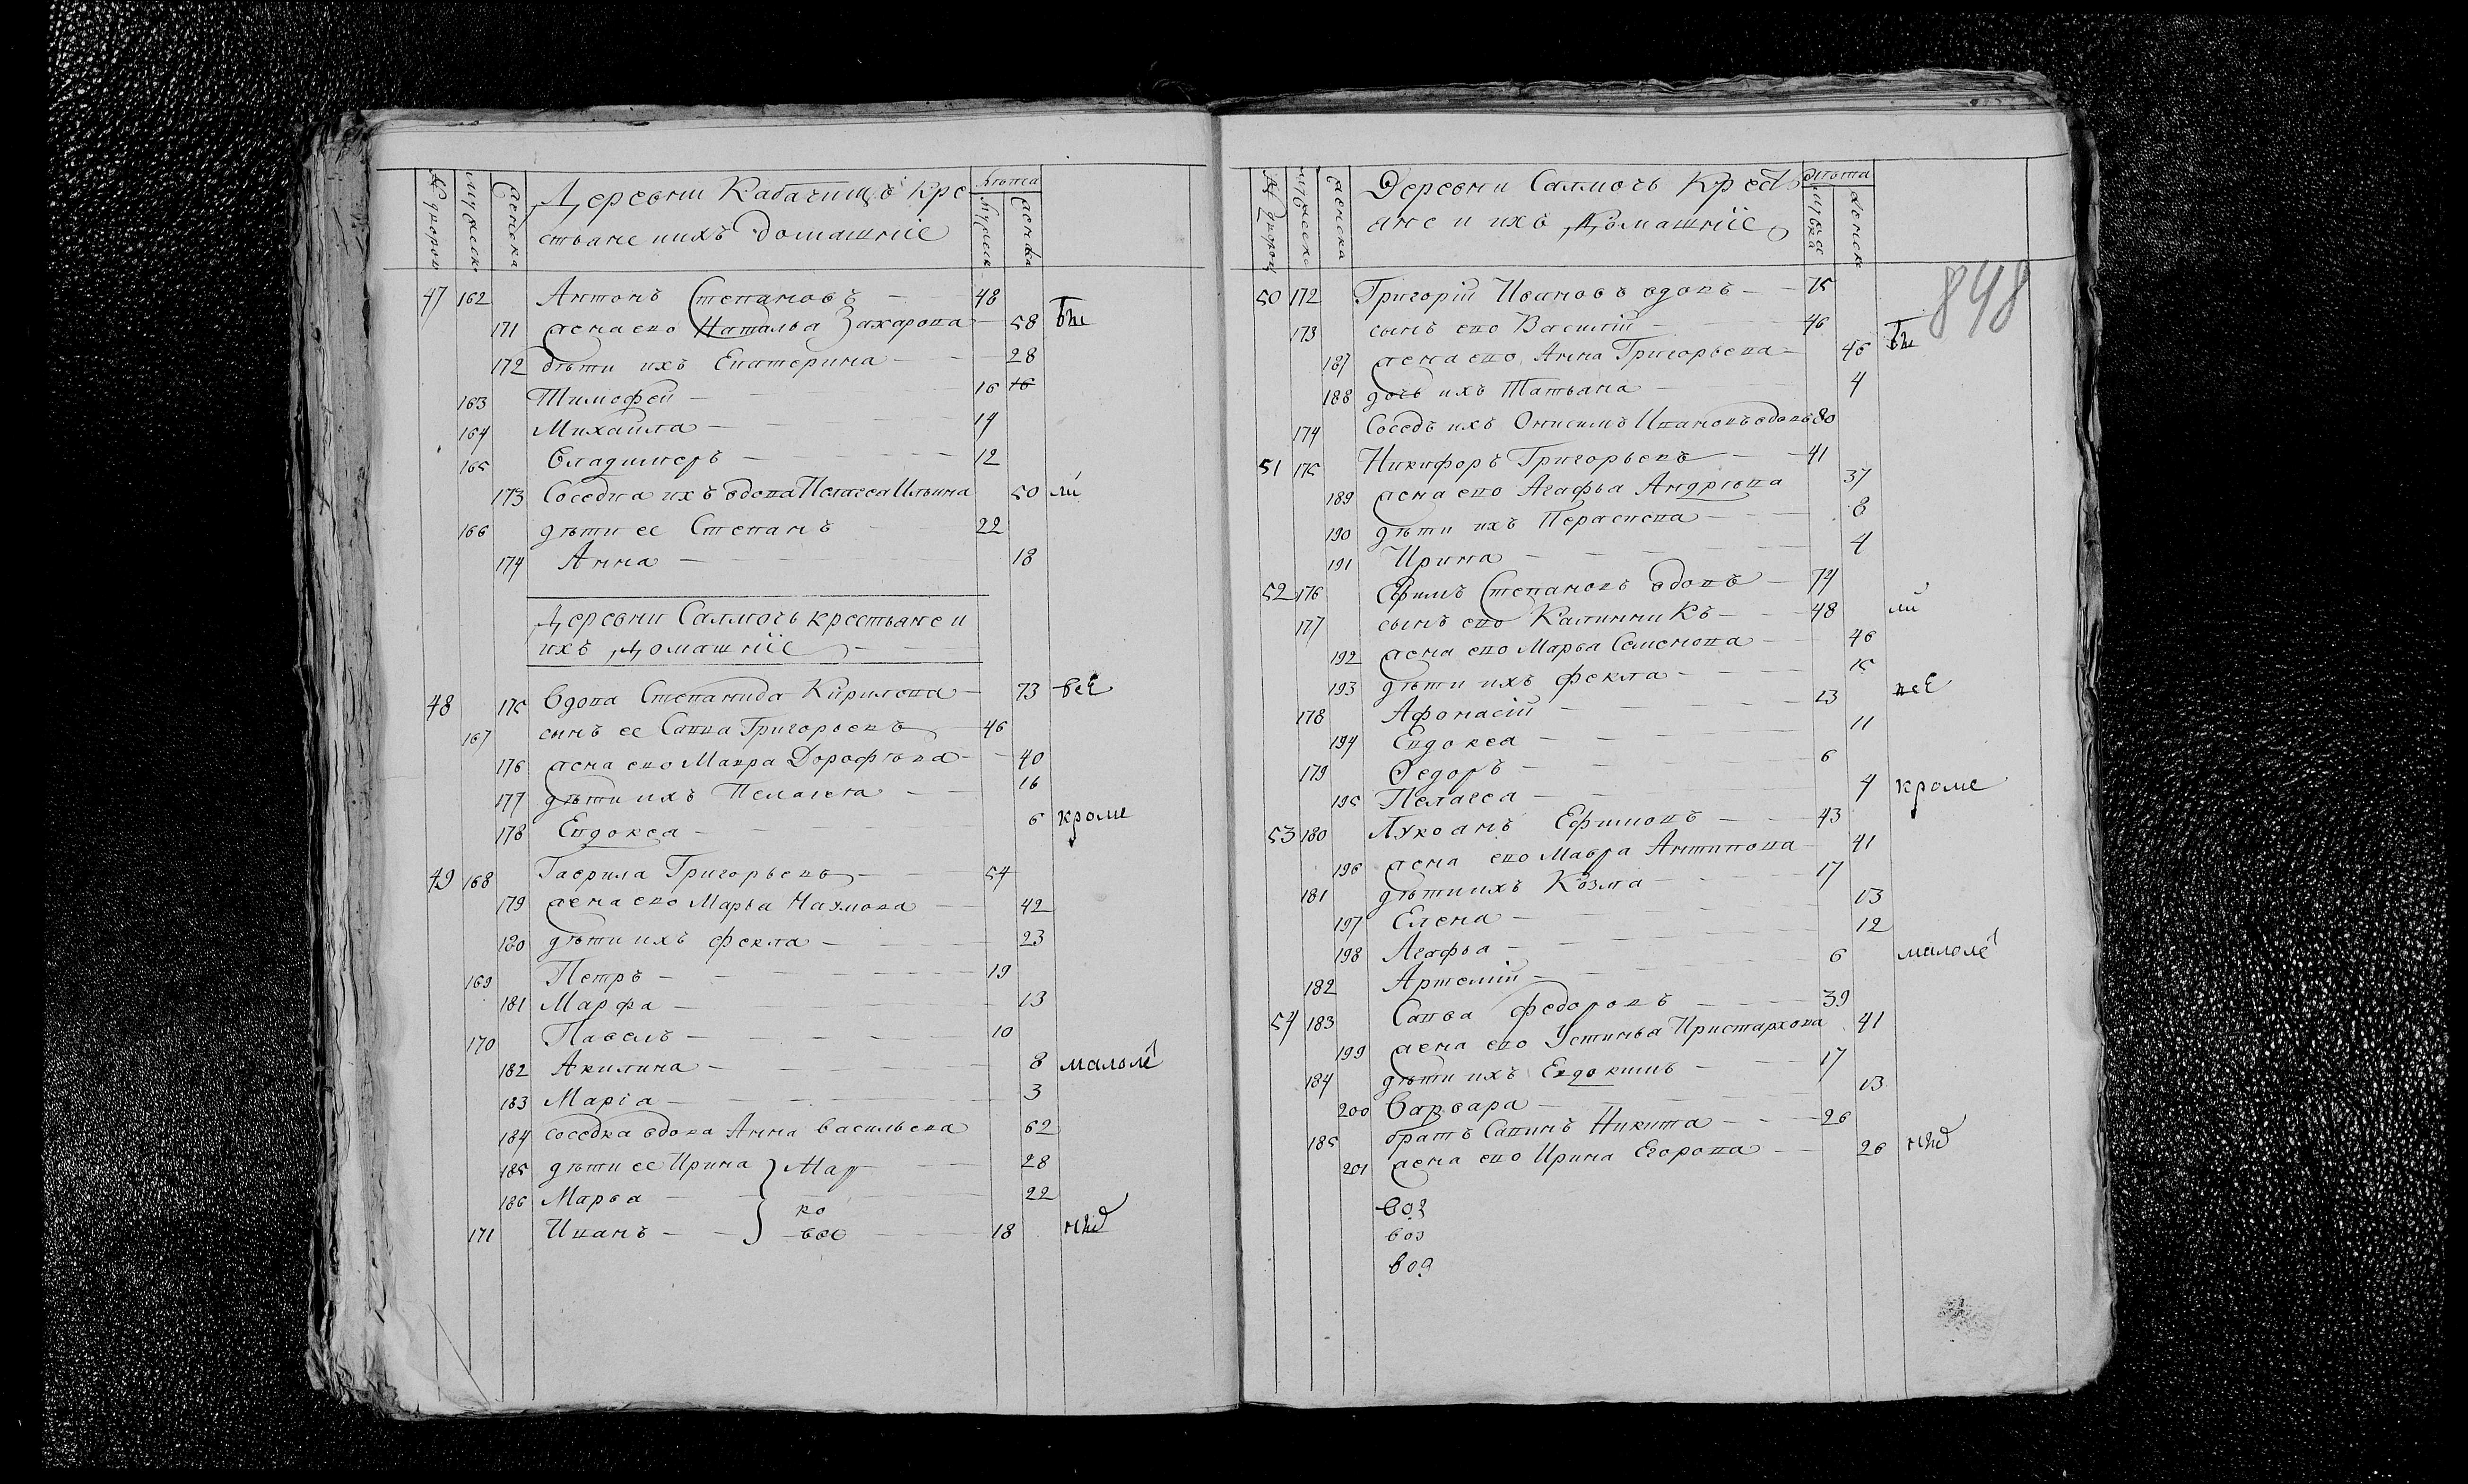 № дворов мужеска женска Деревни Кабачищъ кре лѣта
стьане ихъ домашніе мужеск женска
47 162 Антонъ Степановъ 48
171 жена ево Наталья Захарова 58
172 дѣти ихъ Екатерина 28
163 Тимофей 16 16
164 Михаила 14
165 Владимеръ 12
173 Соседка ихъ вдова Пелагея Ильина 50
166 дѣти ее Степанъ 22
174 Анна 18
Деревни Саммочь крестьяне и
ихъ домашніе
48 175 Вдова Степанида Кирилова 73 всѣ
167 сынъ ее Савва Григорьевъ 46
176 жена ево Мавра Дорофѣева 40
177 дѣти ихъ Пелагея 16
178 Евдокея 6 кроме
49 168 Гаврила Григорьевъ 54
179 жена ево Марья Наумова 42
180 дѣти ихъ Фекла 23
169 Петръ 19
181 Марфа 13
170 Павелъ 10
182 Акилина 8 малолѣ
183 Маріа 3
184 соседка вдова Анна Васильева 62
185 дѣти ее Ирина 28
186 Марья 22
171 Иванъ 18
№ дворов мужеска женска Деревни Саммочь Крест лѣта
яне и ихъ Домашніе мужеска женска
848
50 172 Григорій Ивановъ вдовъ 75
173 сынъ ево Василій 46
187 жена ево Анна Григорьева 46
188 дочь ихъ Татьяна 4
174 Соседъ ихъ Онисимъ Ивановъ вдовъ 80
51 175 Никифоръ Григорьевъ 41
189 жена ево Агафья Андрѣева 37
190 дѣти ихъ Парасковья 8
191 Ирина 4
52 176 Ефимъ Степановъ вдовъ 74
177 сынъ ево Калинникъ 48
192 жена ево Марья Семенова 46
193 дѣти ихъ Фекла 15
178 Афонасій 13 всѣ
194 Евдокея 11
179 Федоръ 6
195 Пелагея 4 кроме
53 180 Лукоанъ Ефимовъ 43
196 жена ево Мавра Антипова 41
181 дѣти ихъ Козма 17
197 Елена 13
198 Агафья 12
182 Артемій 6 малолѣ
54 183 Савва Федоровъ 39
199 жена ево Устинья Аристархова 41
184 дѣти ихъ Евдокимъ 17
200 Варвара 13
185 братъ Савинъ Никита 26
201 жена ево Ирина Егорова 26